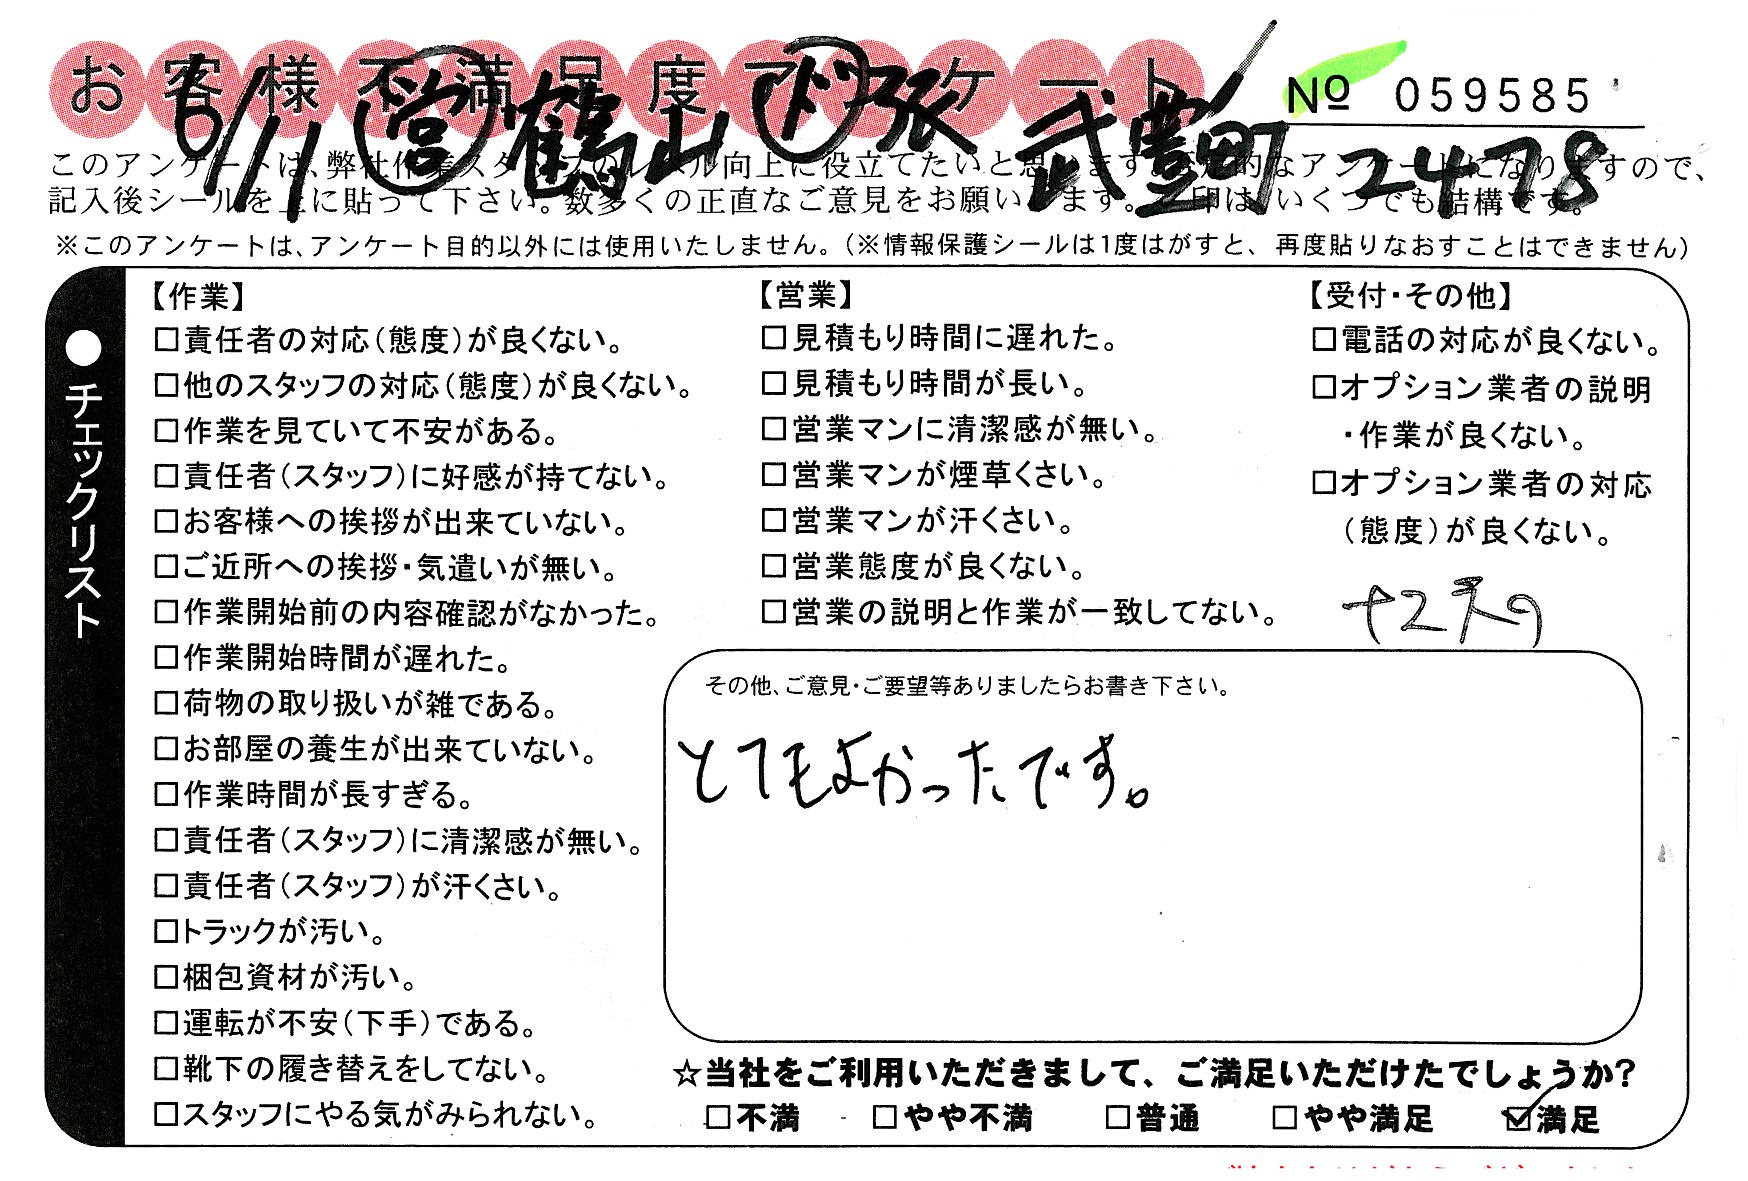 お客様不満足度アンケート
№ 059585
6/11 営 鶴山 ド 張 武豊町 2478
このアンケートは、弊社作業スタッフのレベル向上に役立てたいと思います。
記入後シールを上に貼って下さい。数多くの正直なご意見をお願いします。 印は、いくつでも結構です。
※このアンケートは、アンケート目的以外には使用いたしません。(※情報保護シールは1度はがすと、再度貼りなおすことはできません)
●チェックリスト
【作業】
□責任者の対応(態度)が良くない。
□他のスタッフの対応(態度)が良くない。
□作業を見ていて不安がある。
□責任者(スタッフ)に好感が持てない。
□お客様への挨拶が出来ていない。
□ご近所への挨拶・気遣いが無い。
□作業開始前の内容確認がなかった。
□作業開始時間が遅れた。
□荷物の取り扱いが雑である。
□お部屋の養生が出来ていない。
□作業時間が長すぎる。
□責任者(スタッフ)に清潔感が無い。
□責任者(スタッフ)が汗くさい。
□トラックが汚い。
□梱包資材が汚い。
□運転が不安(下手)である。
□靴下の履き替えをしてない。
□スタッフにやる気がみられない。
【営業】
□見積もり時間に遅れた。
□見積もり時間が長い。
□営業マンに清潔感が無い。
□営業マンが煙草くさい。
□営業マンが汗くさい。
□営業態度が良くない。
□営業の説明と作業が一致してない。
【受付・その他】
□電話の対応が良くない。
□オプション業者の説明
・作業が良くない。
□オプション業者の対応
(態度)が良くない。
その他、ご意見・ご要望等ありましたらお書き下さい。
とてもよかったです。
☆当社をご利用いただきまして、ご満足いただけたでしょうか?
□不満 □やや不満 □普通 □やや満足 ☑満足